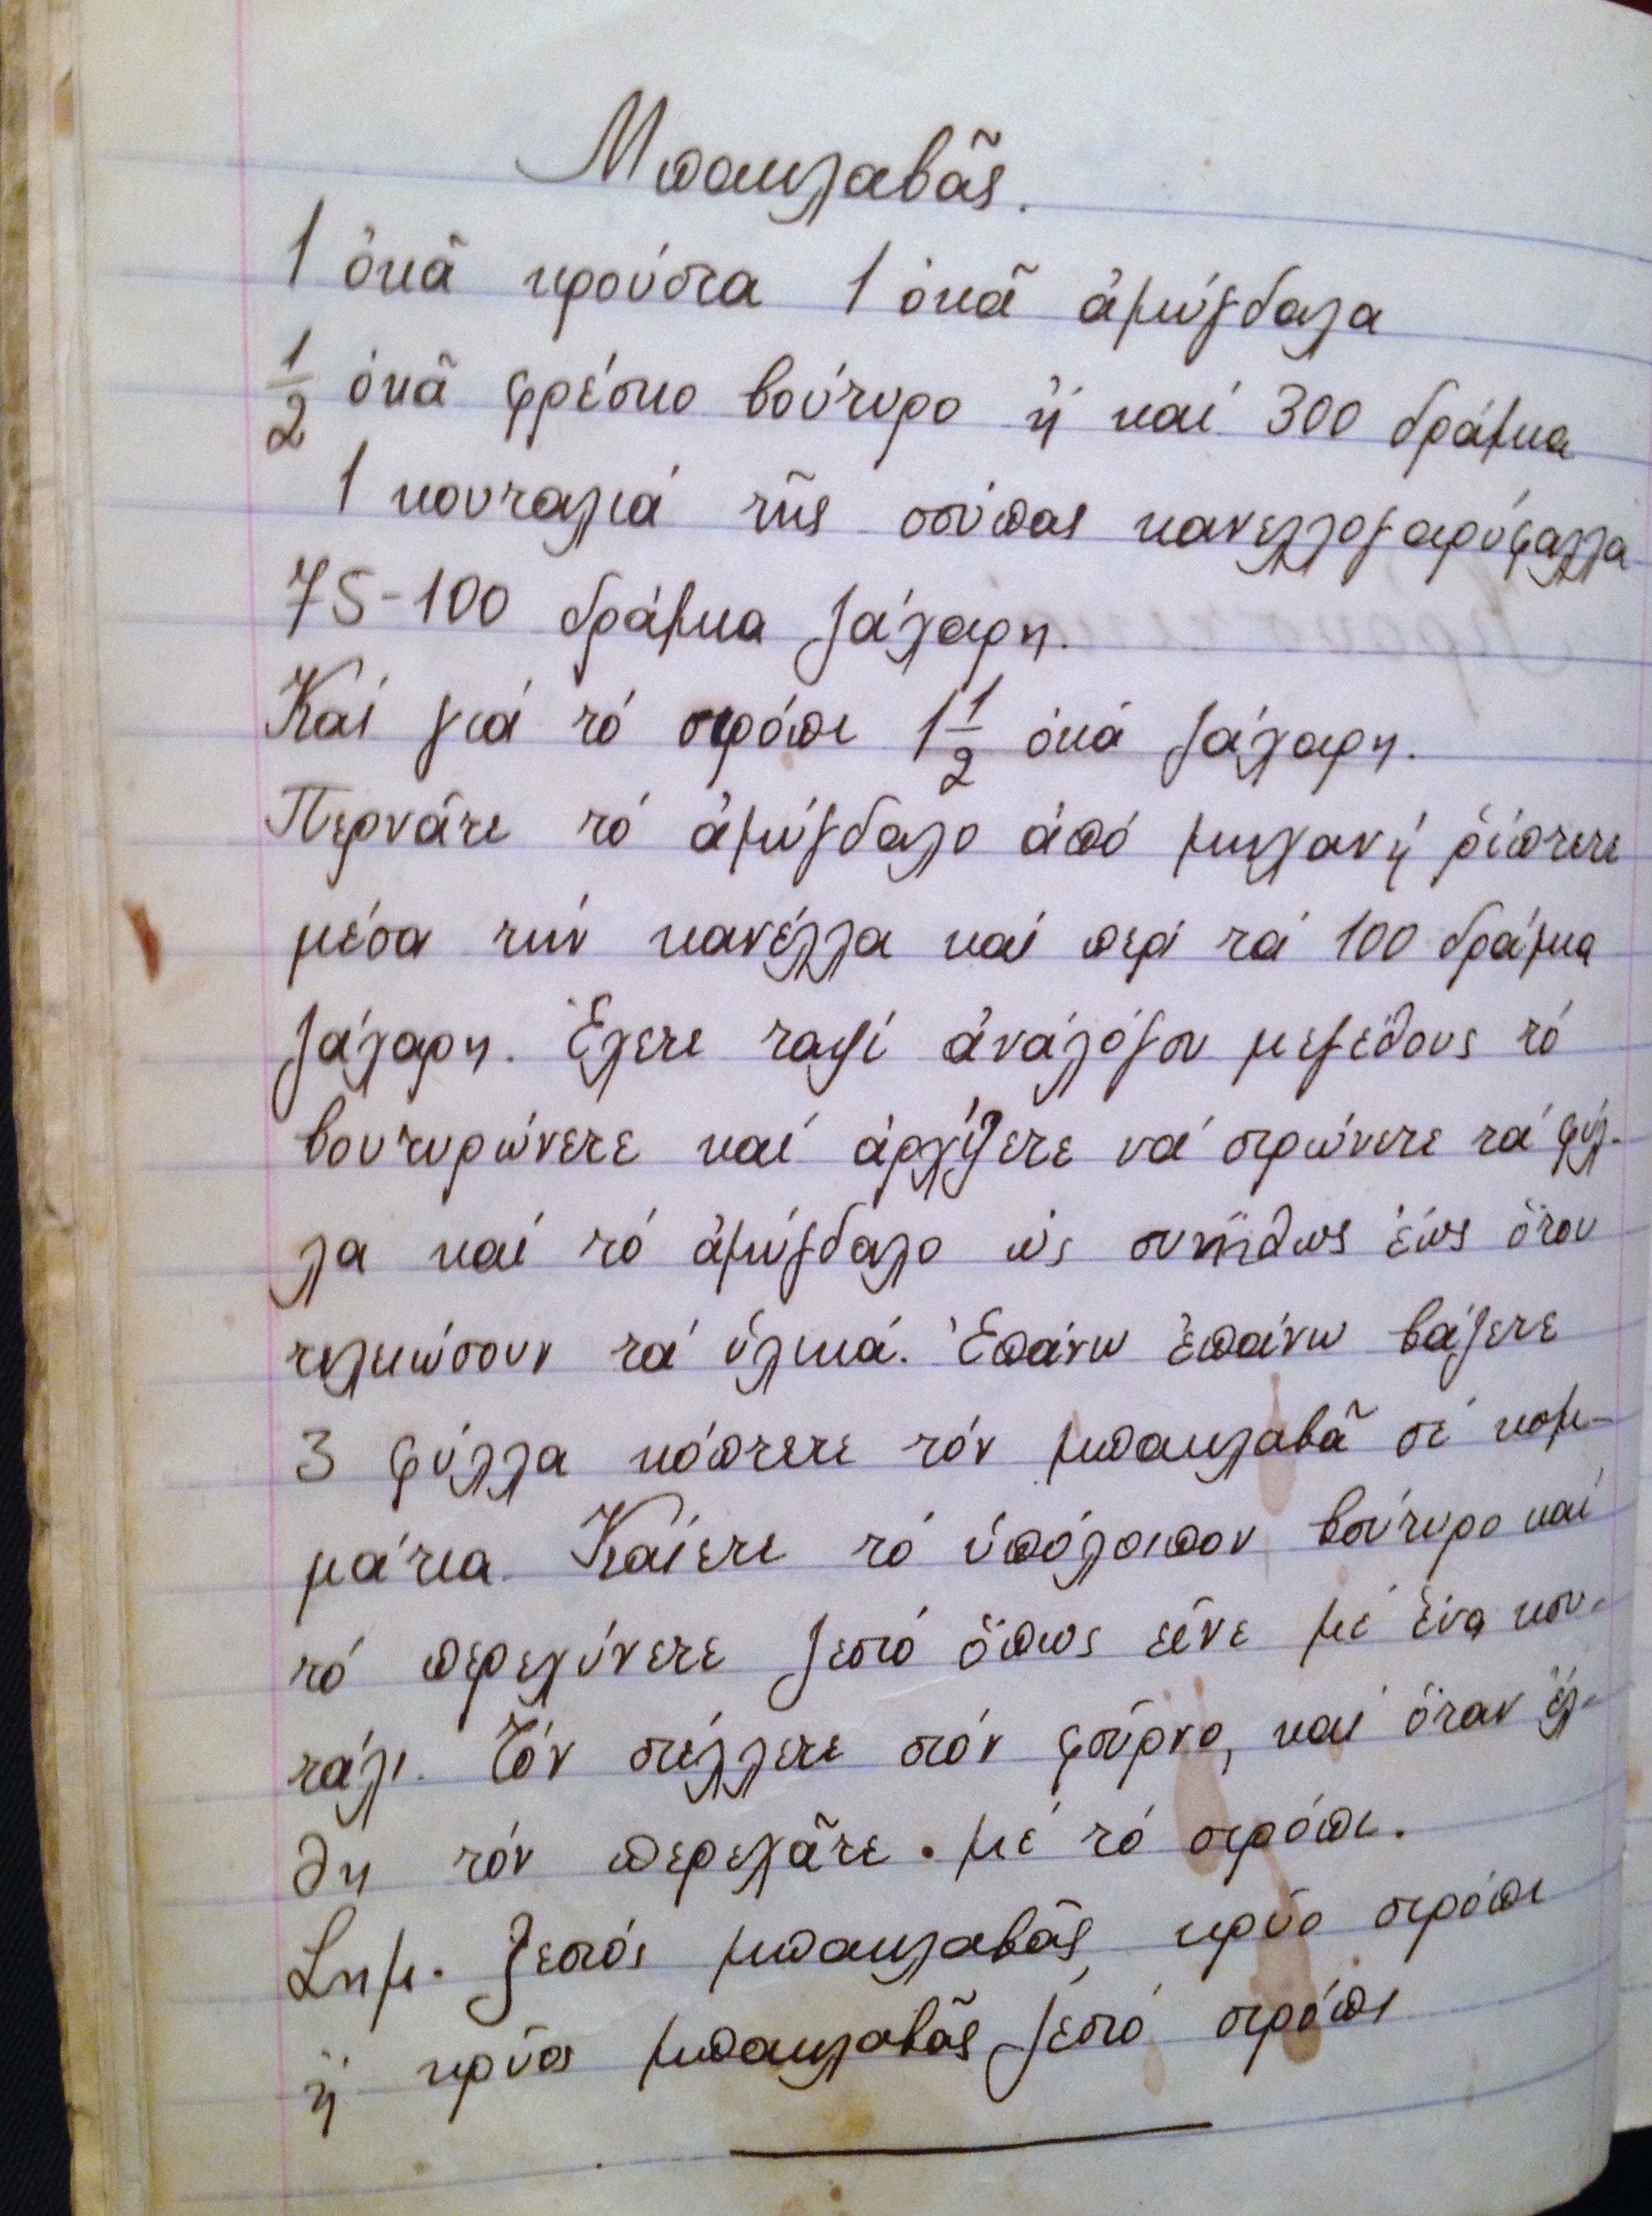 Μπακλαβᾶς.
1 ὀκᾶ κρούστα 1 ὀκᾶ ἀμύγδαλα
1/2 ὀκᾶ φρέσκο βούτυρο ἤ καί 300 δράμια
1 κουταλιά τῆς σούπας κανελλογαρύφαλλα
75-100 δράμια ζάχαρη.
Καί γιά τό σιρόπι 1 1/2 ὀκά ζάχαρη.
Περνᾶτε τό ἀμύγδαλο ἀπό μηχανή ρίπτετε
μέσα τήν κανέλλα καί περί τά 100 δράμια
ζάχαρη. Ἔχετε ταψί ἀνάλόγου μεγέθους τό
βουτυρώνετε καί ἀρχίζετε νά στρώνετε τά φύλ-
λα καί τό ἀμύγδαλο ὡς συνήθως ἕως ὅτου
τελειώσουν τά ὑλικά. Ἐπάνω ἐπάνω βάζετε
3 φύλλα κόπτετε τόν μπακλαβᾶ σέ κομ-
μάτια. Καίετε τό ὑπόλοιπον βούτυρο καί
τό περεχύνετε ζεστό ὅπως εἶνε μέ ἕνα κου-
τάλι. Τόν στέλλετε στόν φοῦρνο, καί ὅταν ἔλ-
θη τόν περεχᾶτε. μέ τό σιρόπι.
Σημ. Ζεστός μπακλαβᾶς κρύο σιρόπι
ἤ κρύος μπακλαβᾶς ζεστό σιρόπι